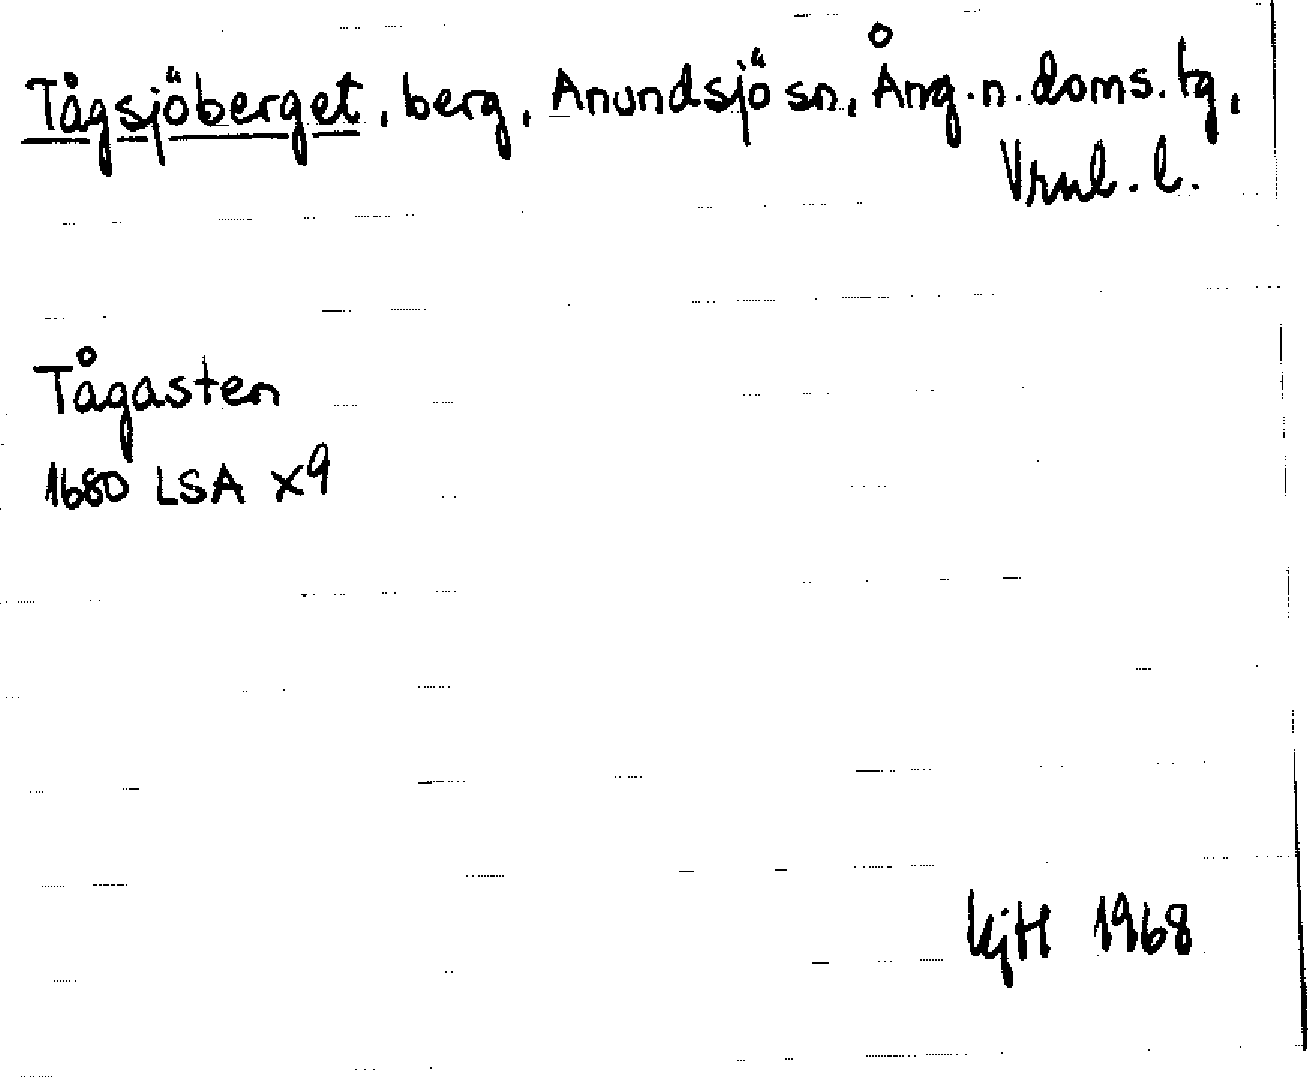 Tågsjöberget, berg, Anundsjö sn, Ång. n. doms. tg,
Vrnl. l.
Tågasten
1680 LSA X9
KjH 1968